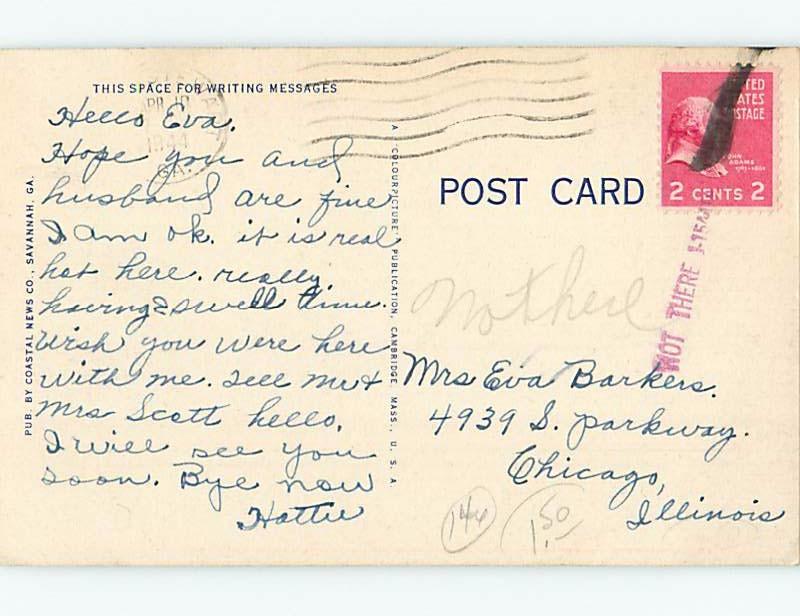 THIS SPACE FOR WRITING MESSAGES
Hello Eva.
Hope you and
husband are fine
I am ok. it is real
hot here. really
having a swell time.
Wish you were here
with me. Tell Mr &
Mrs Scott hello.
I will see you
soon. Bye now
Hattie
PUB. BY COASTAL NEWS CO., SAVANNAH, GA.
A "COLOURPICTURE" PUBLICATION, CAMBRIDGE, MASS., U. S. A.
GA.
POST CARD
UNITED
STATES
POSTAGE
JOHN
ADAMS
2 CENTS 2
NOT THERE
not here
Mrs Eva Barkers.
4939 S. parkway.
Chicago,
Illinois
146
1.50